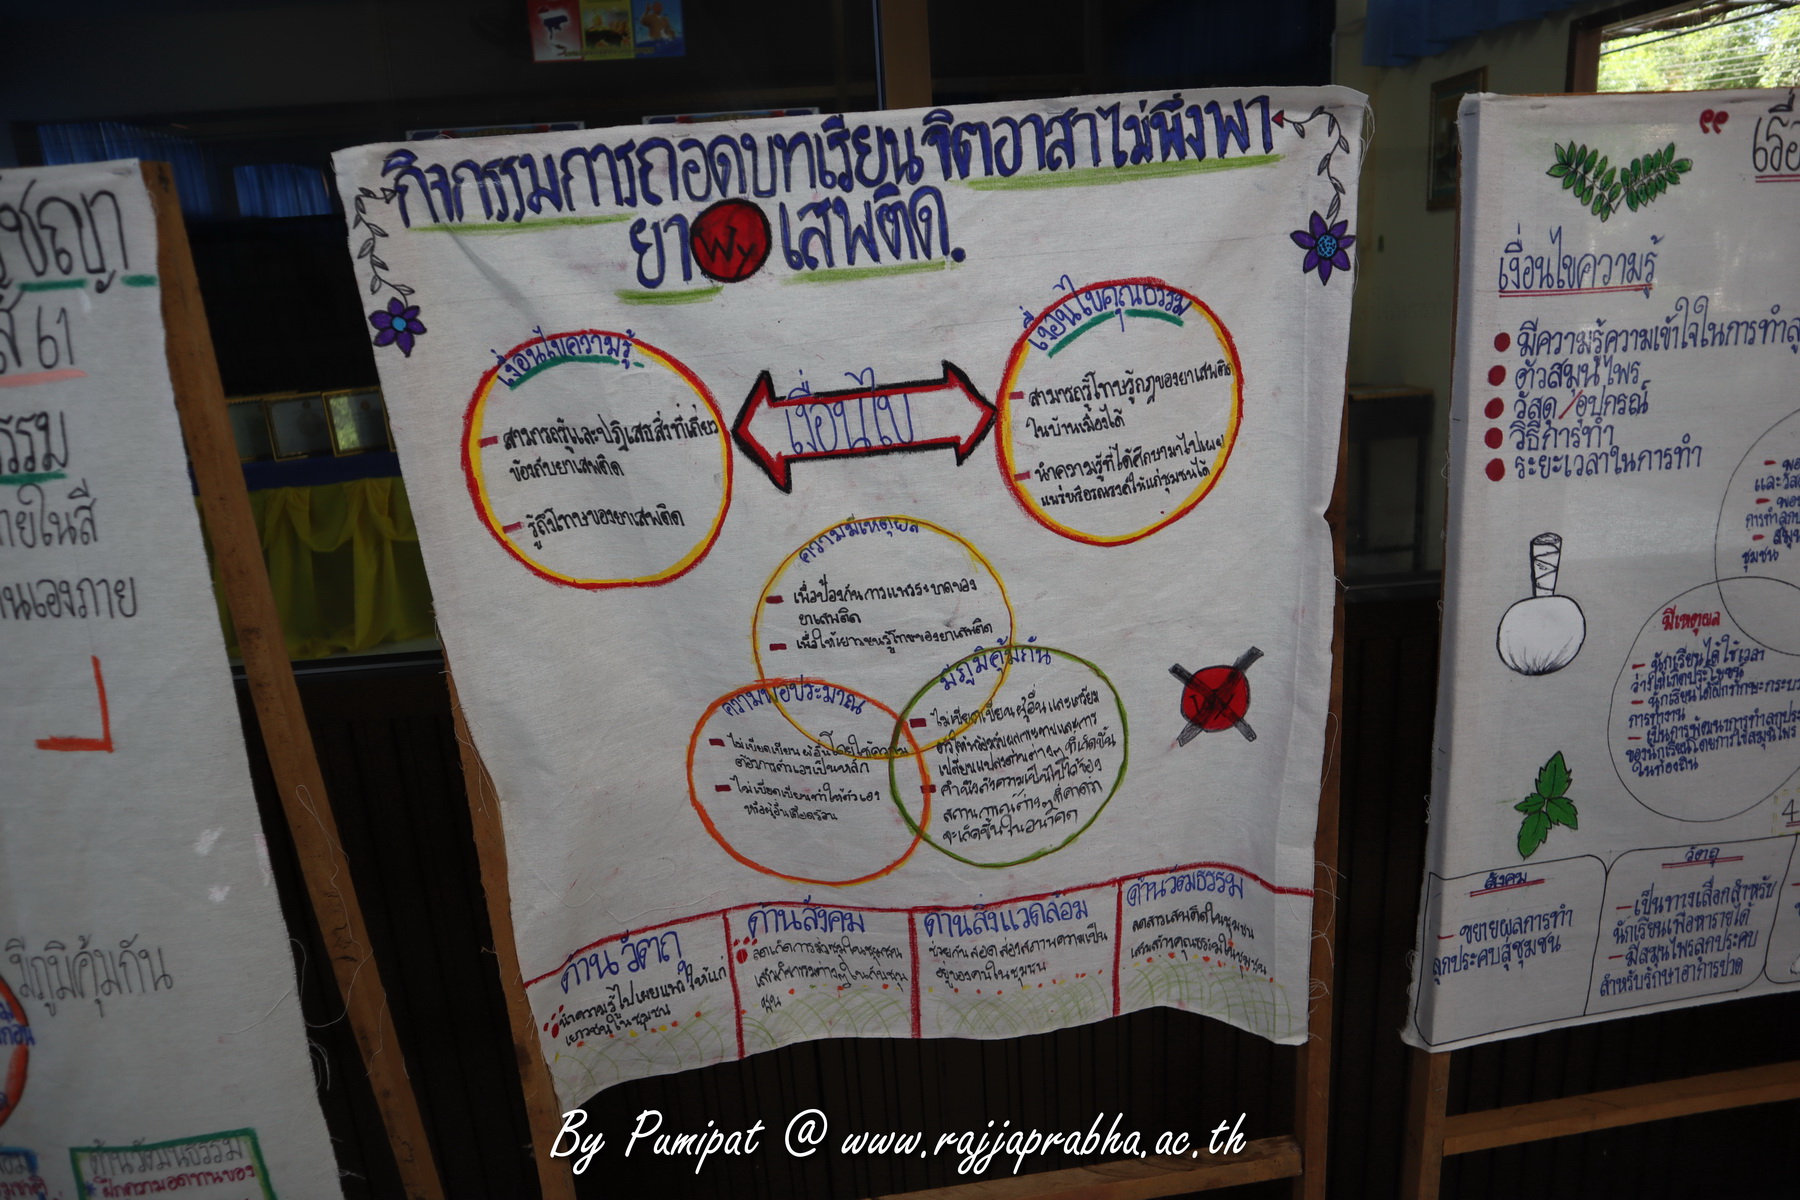 กิจกรรมการถอดบทเรียน จิตอาสาไม่พึ่งพา
ยา Wy เสพติด.
เงื่อนไขความรู้
สามารถรู้และปฏิเสธสิ่งที่เกี่ยว
ข้องกับยาเสพติด
รู้ถึงโทษของยาเสพติด
เงื่อนไข
เงื่อนไขคุณธรรม
สามารถรู้โทษรู้กฎของยาเสพติด
ในบ้านเมืองได้
นำความรู้ที่ได้ศึกษามาไปเผย
แพร่หรือรณรงค์ให้แก่ชุมชนได้
ความมีเหตุผล
เพื่อป้องกันการแพร่ระบาดของ
ยาเสพติด
เพื่อให้เยาวชนรู้โทษของยาเสพติด
ความพอประมาณ
ไม่เบียดเบียนผู้อื่นโดยใช้ความ
ต้องการตัวเองเป็นหลัก
ไม่เบียดเบียนทำให้ตัวเอง
หรือผู้อื่นเดือดร้อน
มีภูมิคุ้มกัน
ไม่เบียดเบียนผู้อื่น และเตรียม
ตัวให้พร้อมรับผลกระทบและการ
เปลี่ยนแปลงด้านต่างๆ ที่เกิดขึ้น
คำนึงถึงความเป็นไปได้ของ
สถานการณ์ต่างๆ ที่คาดว่า
จะเกิดขึ้นในอนาคต
ด้านวัตถุ
นำความรู้ไปเผยแพร่ให้แก่
เยาวชนในชุมชน
ด้านสังคม
ชุมชน
ด้านสิ่งแวดล้อม
ช่วยกันสอดส่องสถานความเป็น
อยู่ของคนในชุมชน
ด้านวัฒธรรม
ลดสารเสพติดในชุมชน
เสริมสร้างคุณธรรมในชุมชน
ส 61
ายในสี
านเองภาย
มีภูมิคุ้มกัน
ด้านวัฒนธรรม
ฝึกความอดทนของ
เรื่อ
เงื่อนไขความรู้
มีความรู้ความเข้าใจในการทำลู
ตัวสมุนไพร
วัสดุ/อุปกรณ์
วิธีการทำ
ระยะเวลาในการทำ
พอ
และวัส
พอป
การทำลูกป
สมุน
ชุมชน
มีเหตุผล
นักเรียนได้ใช้เวลา
ว่างให้เกิดประโยชน์
นักเรียนได้ฝึกทักษะกระบว
การทำงาน
เป็นการพัฒนาการทำลูกประ
ของนักเรียนโดยการใช้สมุนไพร
ในท้องถิ่น
4
สังคม
ขยายผลการทำ
ลูกประคบสู่ชุมชน
วัตถุ
เป็นทางเลือกสำหรับ
นักเรียนเพื่อหารายได้
มีสมุนไพรลูกประคบ
สำหรับรักษาอาการปวด
By Pumipat @ www.rajjaprabha.ac.th